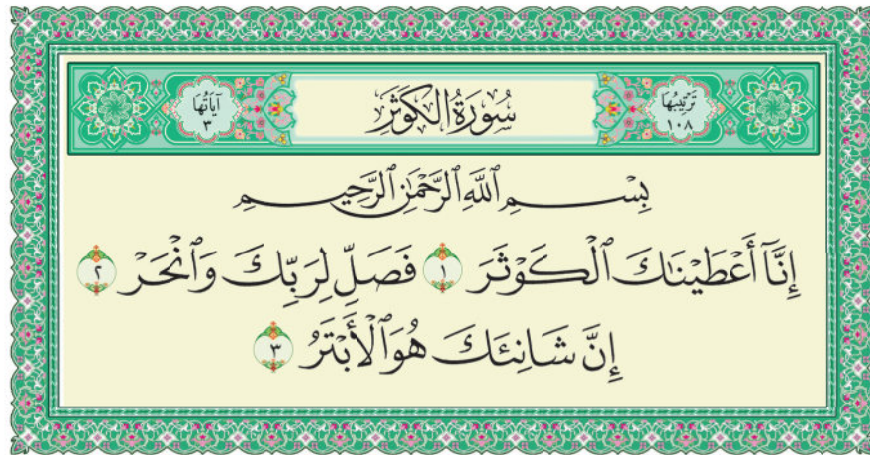 ترتيبها ١٠٨ سُورَةُ الكَوْثَرِ آياتُها ٣
بِسْمِ ٱللَّهِ ٱلرَّحْمَٰنِ ٱلرَّحِيمِ
إِنَّآ أَعْطَيْنَٰكَ ٱلْكَوْثَرَ ١ فَصَلِّ لِرَبِّكَ وَٱنْحَرْ ٢
إِنَّ شَانِئَكَ هُوَ ٱلْأَبْتَرُ ٣